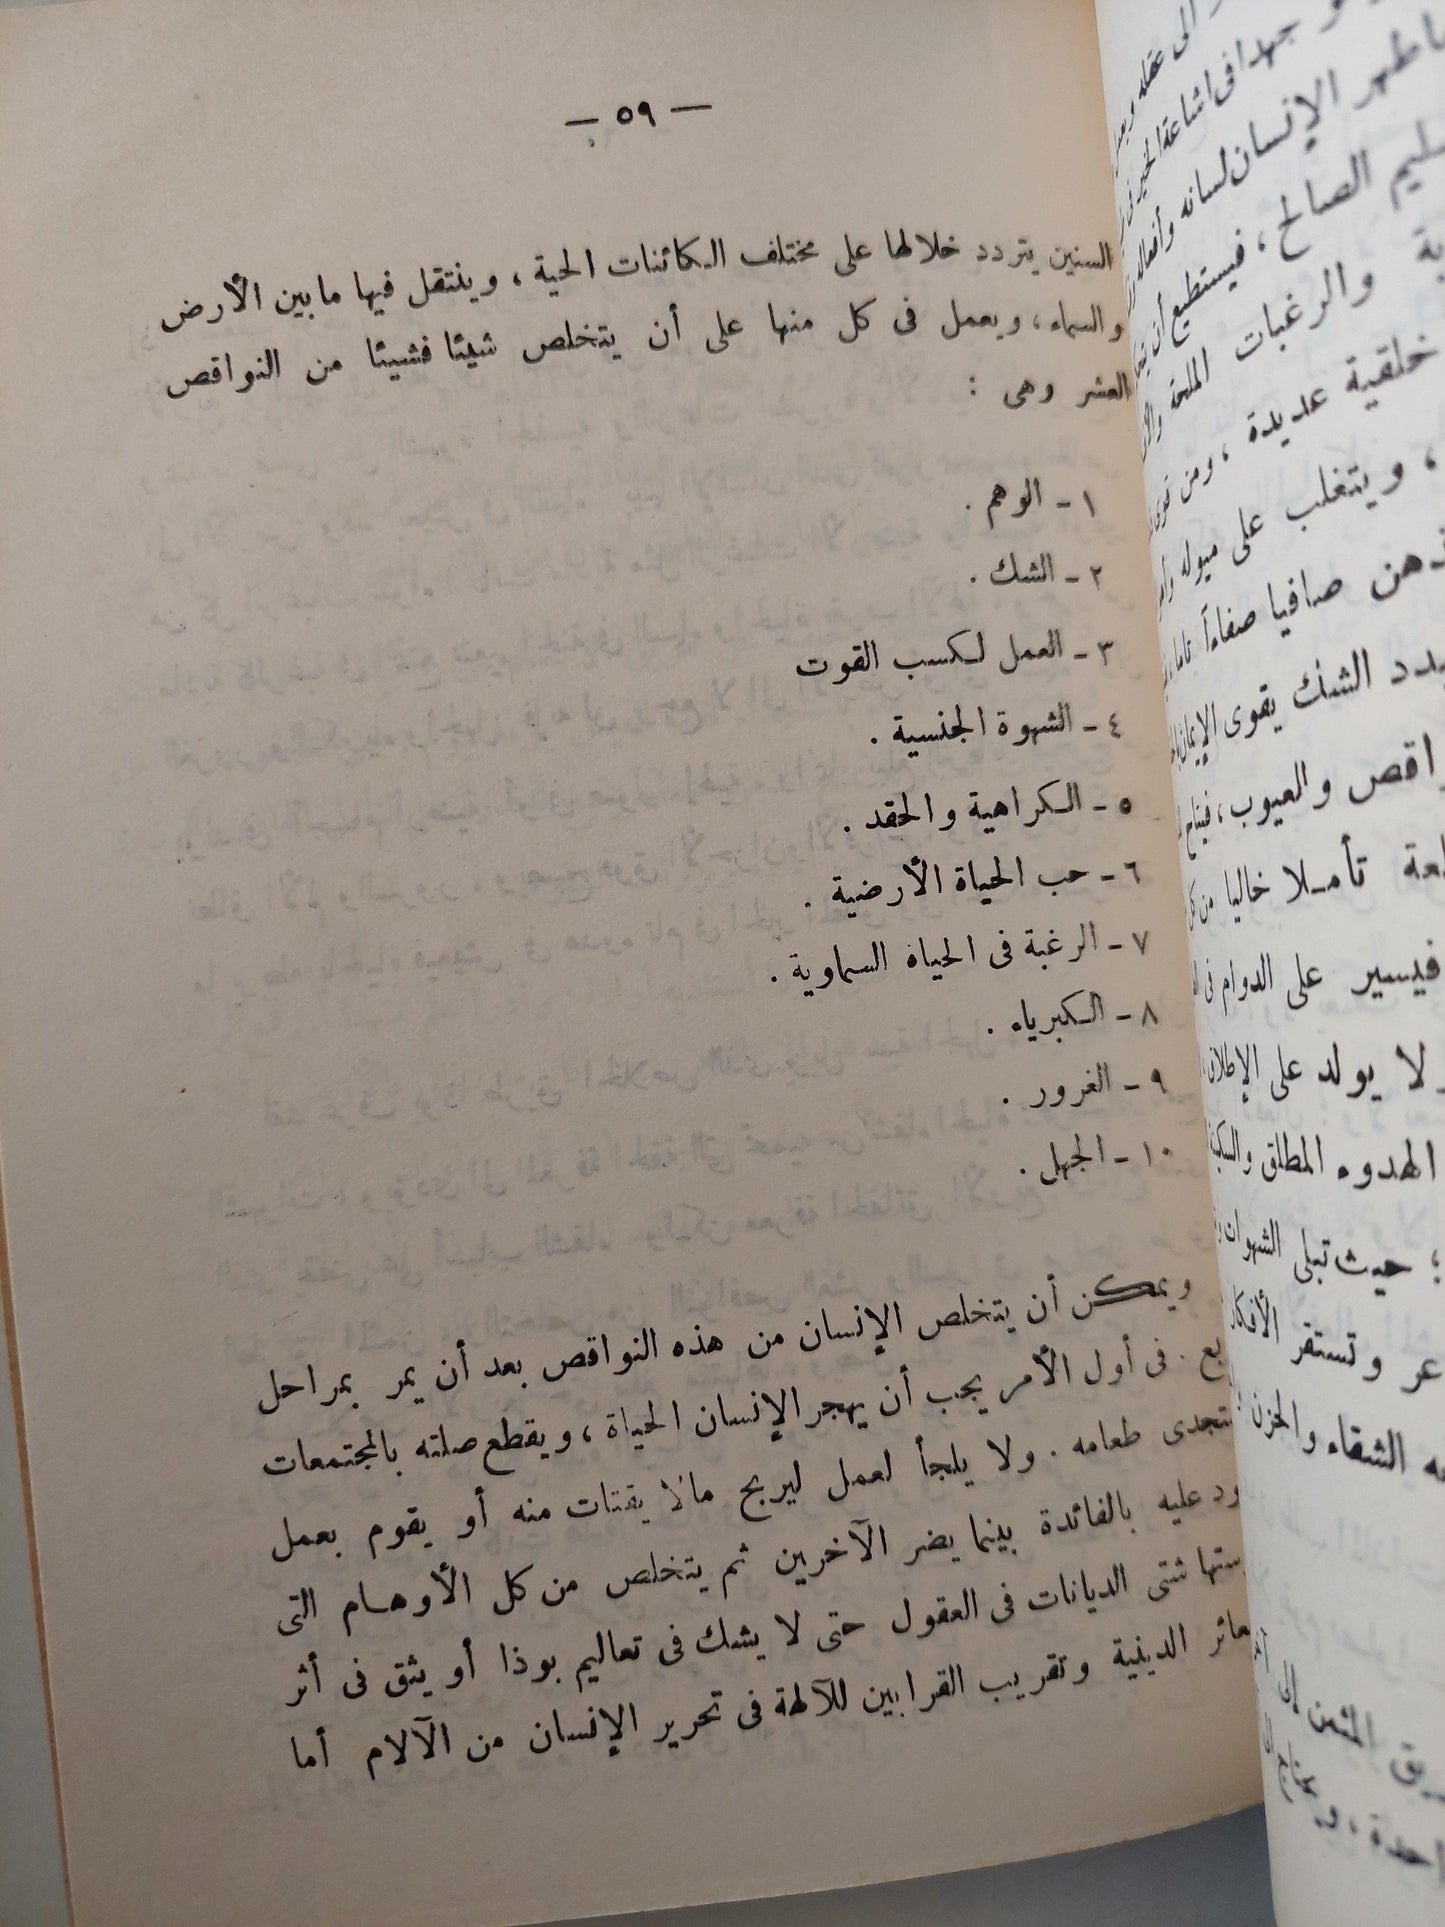 — ٥٩ —
السنين يتردد خلالها على مختلف الكائنات الحية ، وينتقل فيها ما بين الأرض
والسماء ، ويعمل فى كل منها على أن يتخلص شيئا فشيئا من النواقص
العشر وهى :
١ - الوهم .
٢ - الشك .
٣ - العمل لكسب القوت
٤ - الشهوة الجنسية .
٥ - الكراهية والحقد .
٦ - حب الحياة الأرضية .
٧ - الرغبة فى الحياة السماوية .
٨ - الكبرياء .
٩ - الغرور .
١٠ - الجهل .
ويمكن أن يتخلص الإنسان من هذه النواقص بعد أن يمر بمراحل
بع . فى أول الأمر يجب أن يهجر الإنسان الحياة ، ويقطع صلته بالمجتمعات
تجدى طعامه . ولا يلجأ لعمل ليربح مالا يقتات منه أو يقوم بعمل
ود عليه بالفائدة بينما يضر الآخرين ثم يتخلص من كل الأوهام التى
ستها شتى الديانات فى العقول حتى لا يشك فى تعاليم بوذا أو يثق فى أثر
عائر الدينية وتقريب القرابين للآلهة فى تحرير الإنسان من الآلام أما
إلى عقله
جهدا فى اشاعة الخير
الإنسان لسانه وأفعاله
الصالح ، فيستطيع أن
والرغبات الملحة
خلقية عديدة ، ومن
، ويتغلب على ميوله
صافيا صفاءاً تاما
الشك يقوى الإيمان
والعيوب ،
تأملا خاليا من كل
فيسير على الدوام فى
ولا يولد على الإطلاق
الهدوء المطلق والسكينة
؛ حيث تبلى الشهوات
وتستقر الأفكار
الشقاء والحزن
المثمن إلى